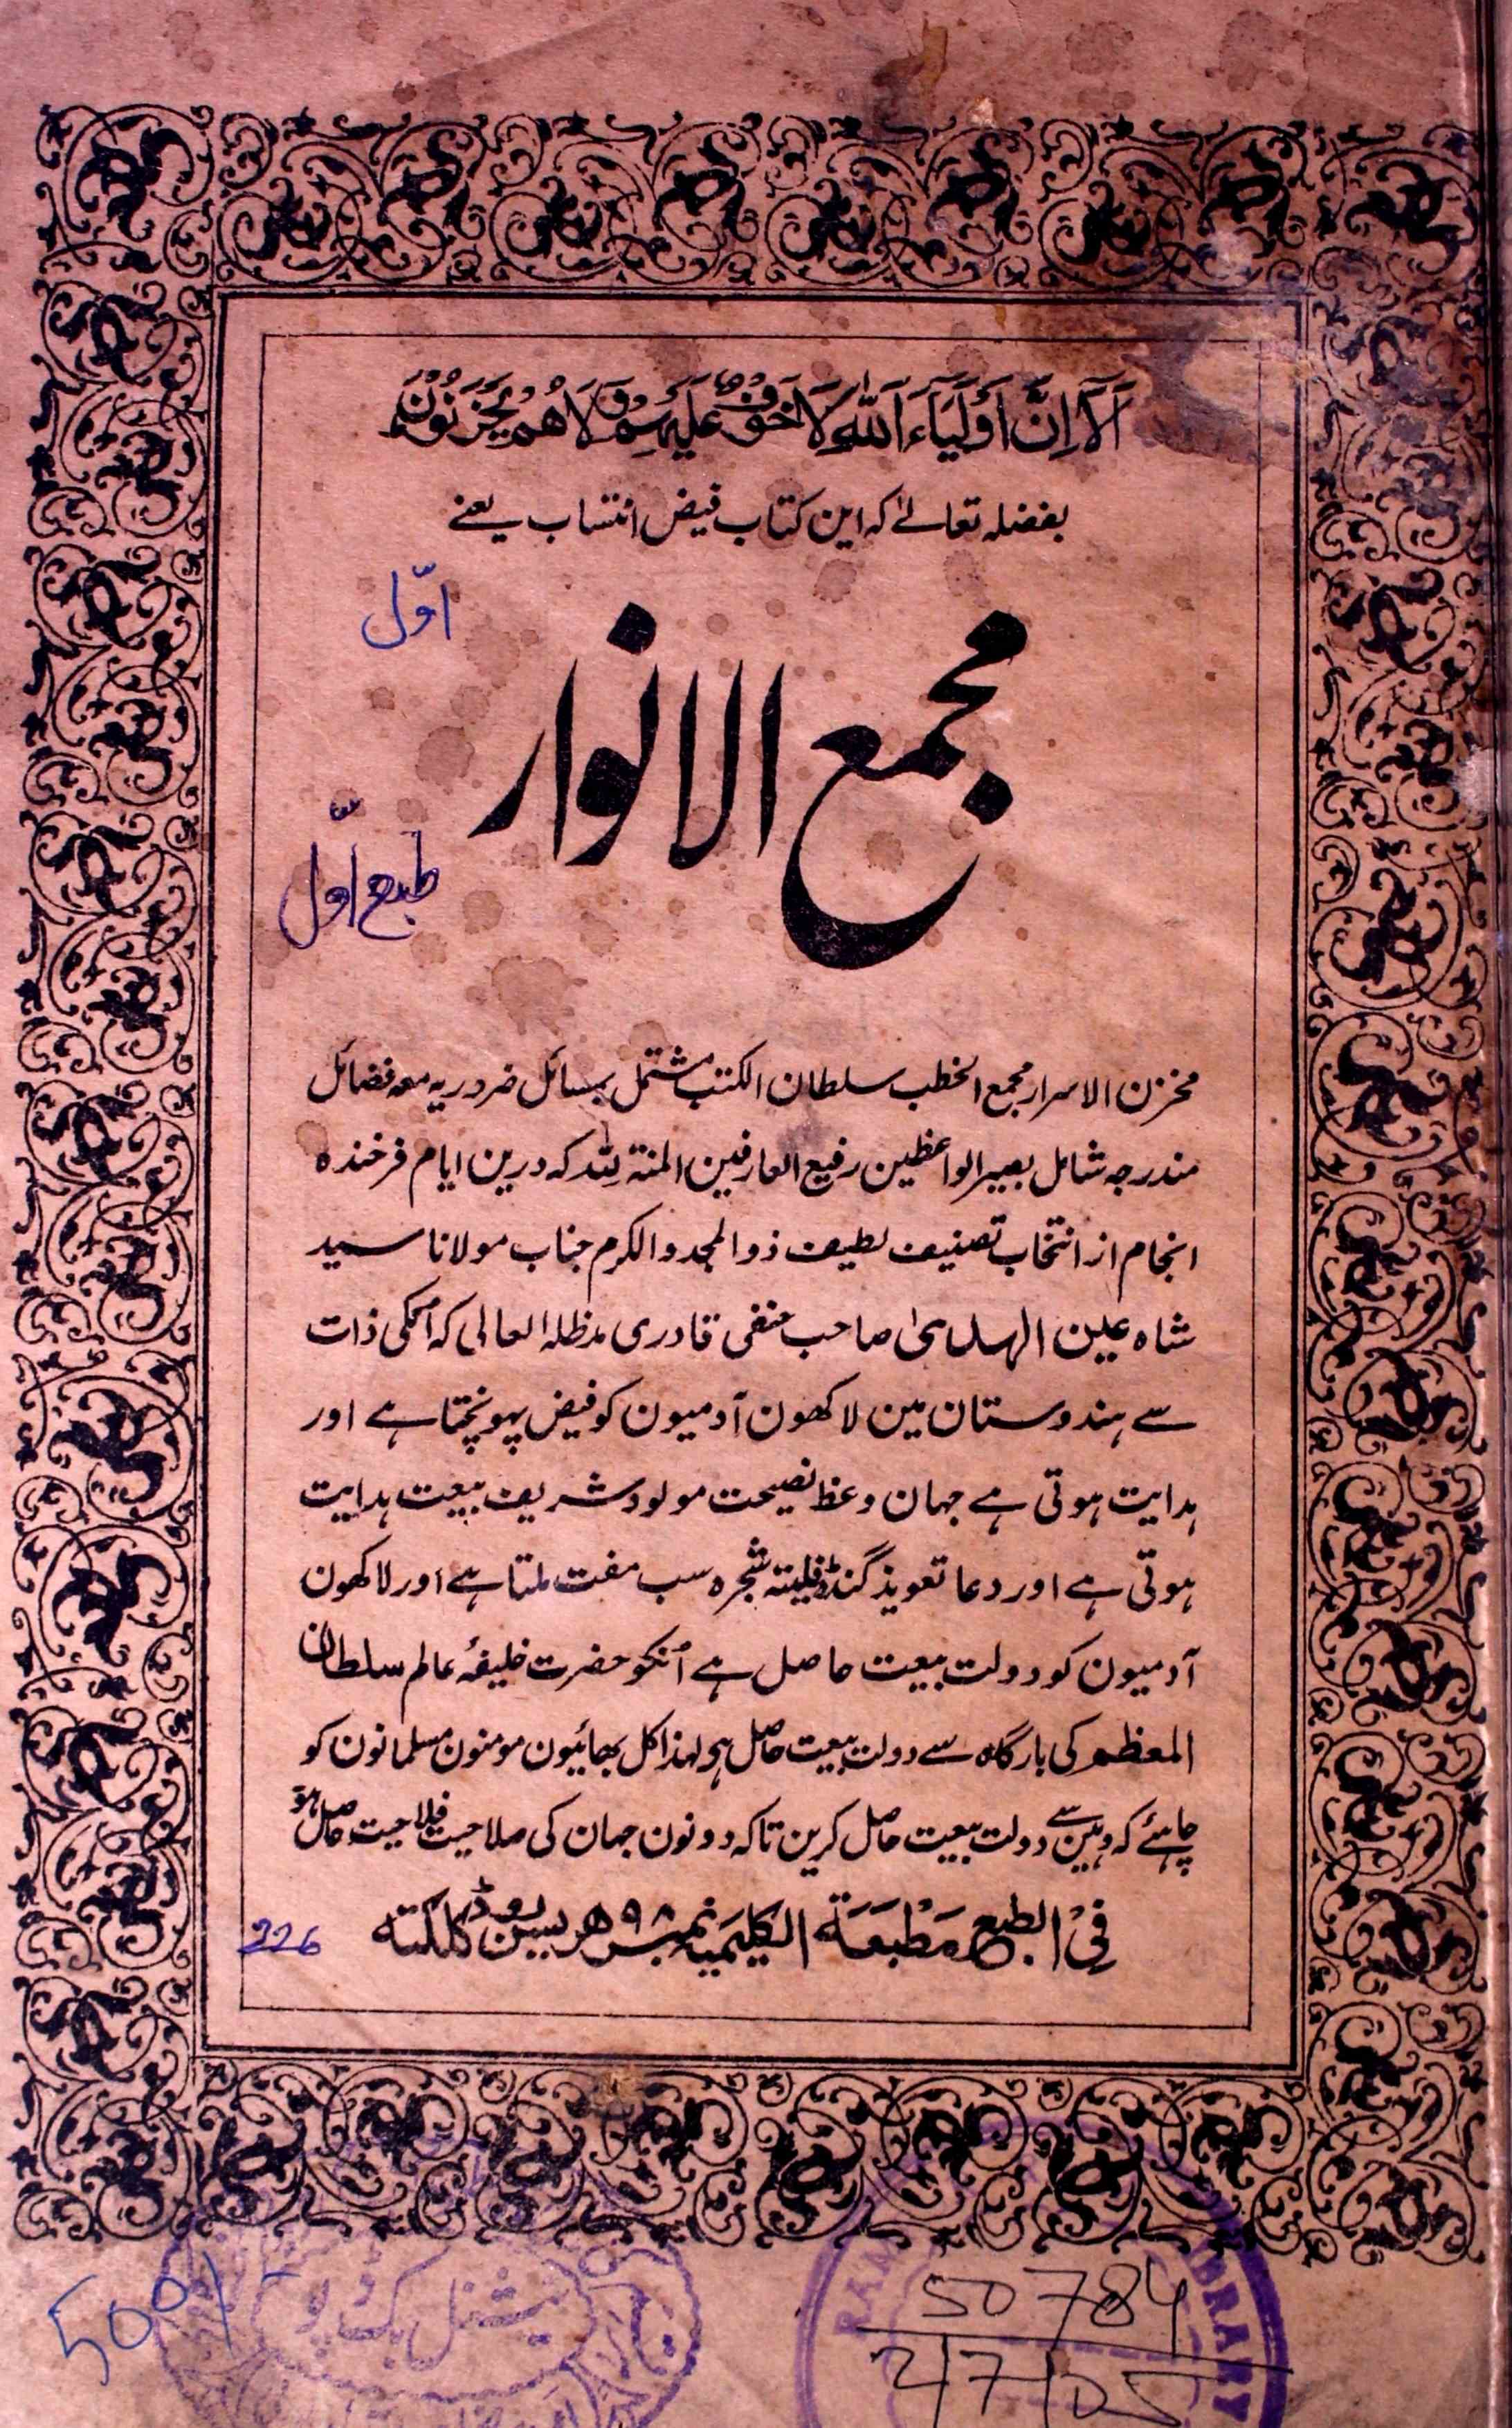 اَلَآ اِنَّ اَوْلِيَآءَ اللّٰهِ لَا خَوْفٌ عَلَيْهِمْ وَلَا هُمْ يَحْزَنُوْنَ
بفضلہ تعالےٰ کہ این کتاب فیض انتساب یعنے
اوّل
مجمع الانوار
طبع اوّل
مخزن الاسرار مجمع الخطب سلطان الکتب مشتمل بمسائل ضروریہ معہ فضائل
مندرجہ شامل بصیر الواعظین رفیع العارفین المنۃ للہ کہ درین ایام فرخندہ
انجام از انتخاب تصنیف لطیف ذو المجد و الکرم جناب مولانا سید
شاہ عین الہدیٰ صاحب حنفی قادری مدظلہ العالی کہ اُنکی ذات
سے ہندوستان مین لاکھون آدمیون کو فیض پہونچتا ہے اور
ہدایت ہوتی ہے جہان وعظ نصیحت مولود شریف بیعت ہدایت
ہوتی ہے اور دعا تعویذ گنڈہ فلیتہ شجرہ سب مفت ملتا ہے اور لاکھون
آدمیون کو دولت بیعت حاصل ہے اُنکو حضرت خلیفۂ عالم سلطان
المعظم کی بارگاہ سے دولت بیعت حاصل ہو لہذا کل بھائیون مومنون مسلمانون کو
چاہئے کہ وہین سے دولت بیعت حاصل کرین تاکہ دونون جہان کی صلاحیت فلاحیت حاصل ہو
فِی الطبع مَطْبَعَۃ الکلیمیہ نمبر ۹۸ ھریسن روڈ کلکتہ
226
500/-
نیشنل بکڈپو
RAM
IBRARY
50784
2/7/05